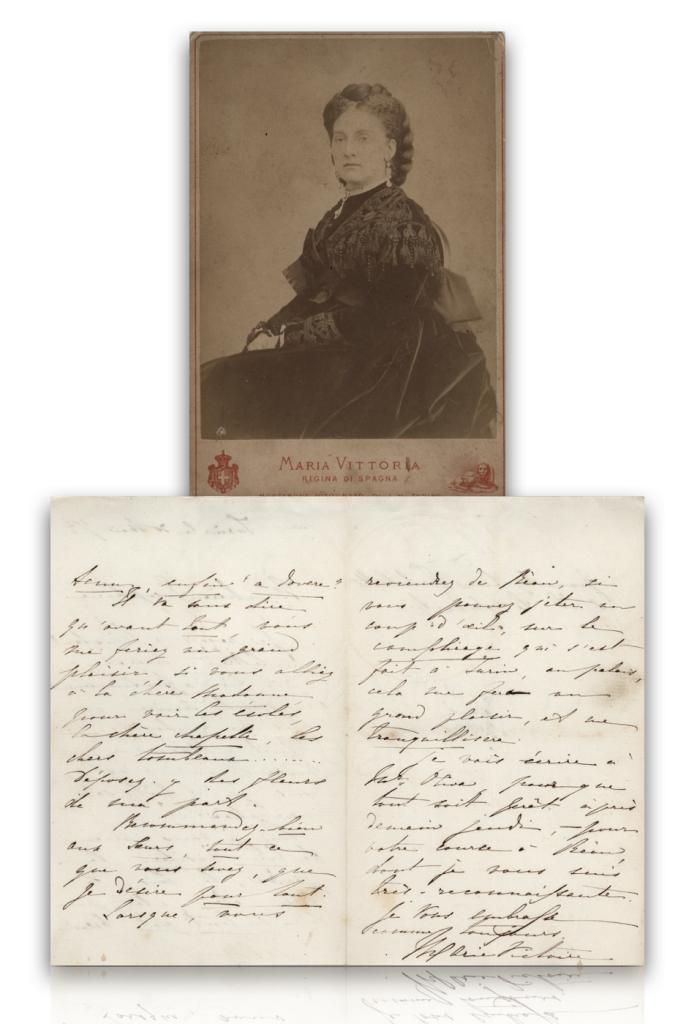 MARIA VITTORIA
REGINA DI SPAGNA
enfin! a dovere?
Il va sans dire
qu'avant tout vous
me feriez un grand
plaisir, si vous alliez
à la chère Madame
pour voir les écoles,
la chère chapelle, les
chers tombeaux........
Déposez-y des fleurs
de ma part.
Recommandez-bien
aux Sœurs, tout ce
que vous savez, que
je désire pour tout.
Lorsque, vous
reviendrez de Réan, si
vous pouvez jeter un
coup-d'œil, sur le
camphrage qui s'est
fait à Turin, au palais,
cela me fera un
grand plaisir, et me
tranquillisera.
Je vais écrire à
Oliva pour que
tout soit prêt après
demain jeudi, – pour
votre course à Réan
dont je vous suis
très-reconnaissante.
Je vous embrasse
comme toujours,
Marie Victoire